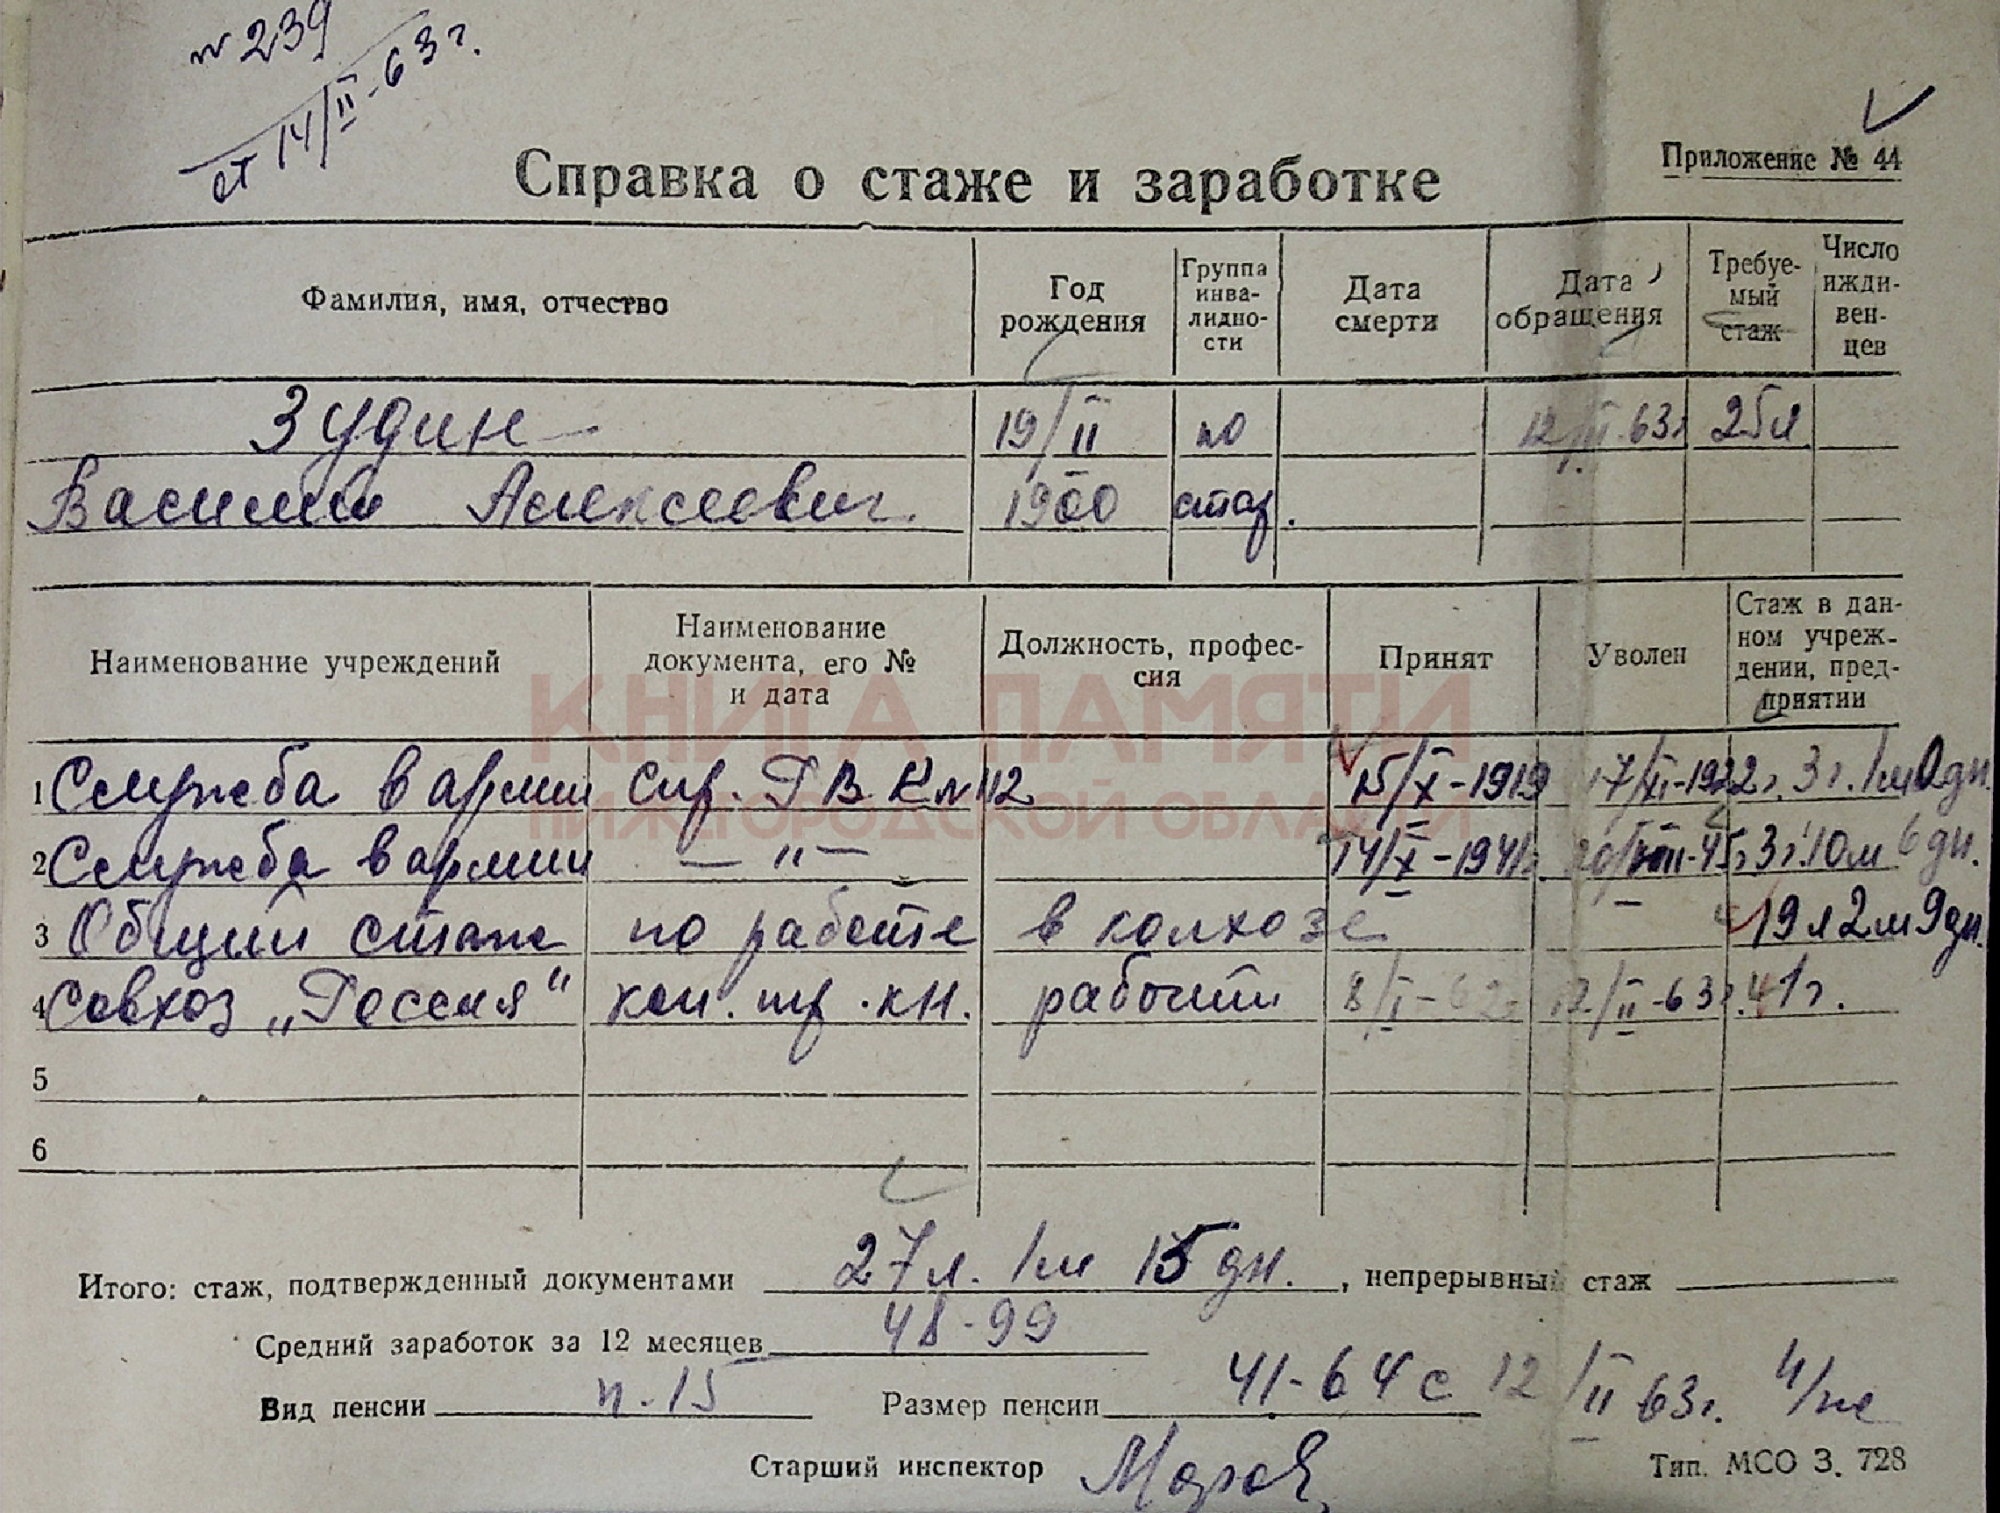 № 239
от 14/II-63 г.
Приложение № 44
Справка о стаже и заработке
Фамилия, имя, отчество
Год рождения
Группа инва-лидно-сти
Дата смерти
Дата обращения
Требуе-мый стаж
Число ижди-вен-цев
Зудин 19/II по 12/II-63г 25л
Василий Алексеевич. 1900 стар.
Наименование учреждений
Наименование документа, его № и дата
Должность, профес-сия
Принят
Уволен
Стаж в дан-ном учреж-дении, пред-приятии
КНИГА ПАМЯТИ
НИЖГОРОДСКОЙ ОБЛАСТИ
1 Служба в армии спр. ГВК № 112 15/X-1919 17/XI-1922г. 3г. 1м 0дн.
2 Служба в армии — " — 14/X-1941г. 20/VIII-45г 3г. 10м 6дн.
3 Общий стаж по работе в колхозе 19л 2м 9дн.
4 Совхоз „Россия" коп. тр. кн. рабочий 8/I-62г 12/II-63г. 1г.
5
6
Итого: стаж, подтвержденный документами 27л. 1м 15дн. , непрерывный стаж
Средний заработок за 12 месяцев 48-99
Вид пенсии п.15 Размер пенсии 41-64 с 12/II 63г. п/ж
Старший инспектор
Тип. МСО З. 728